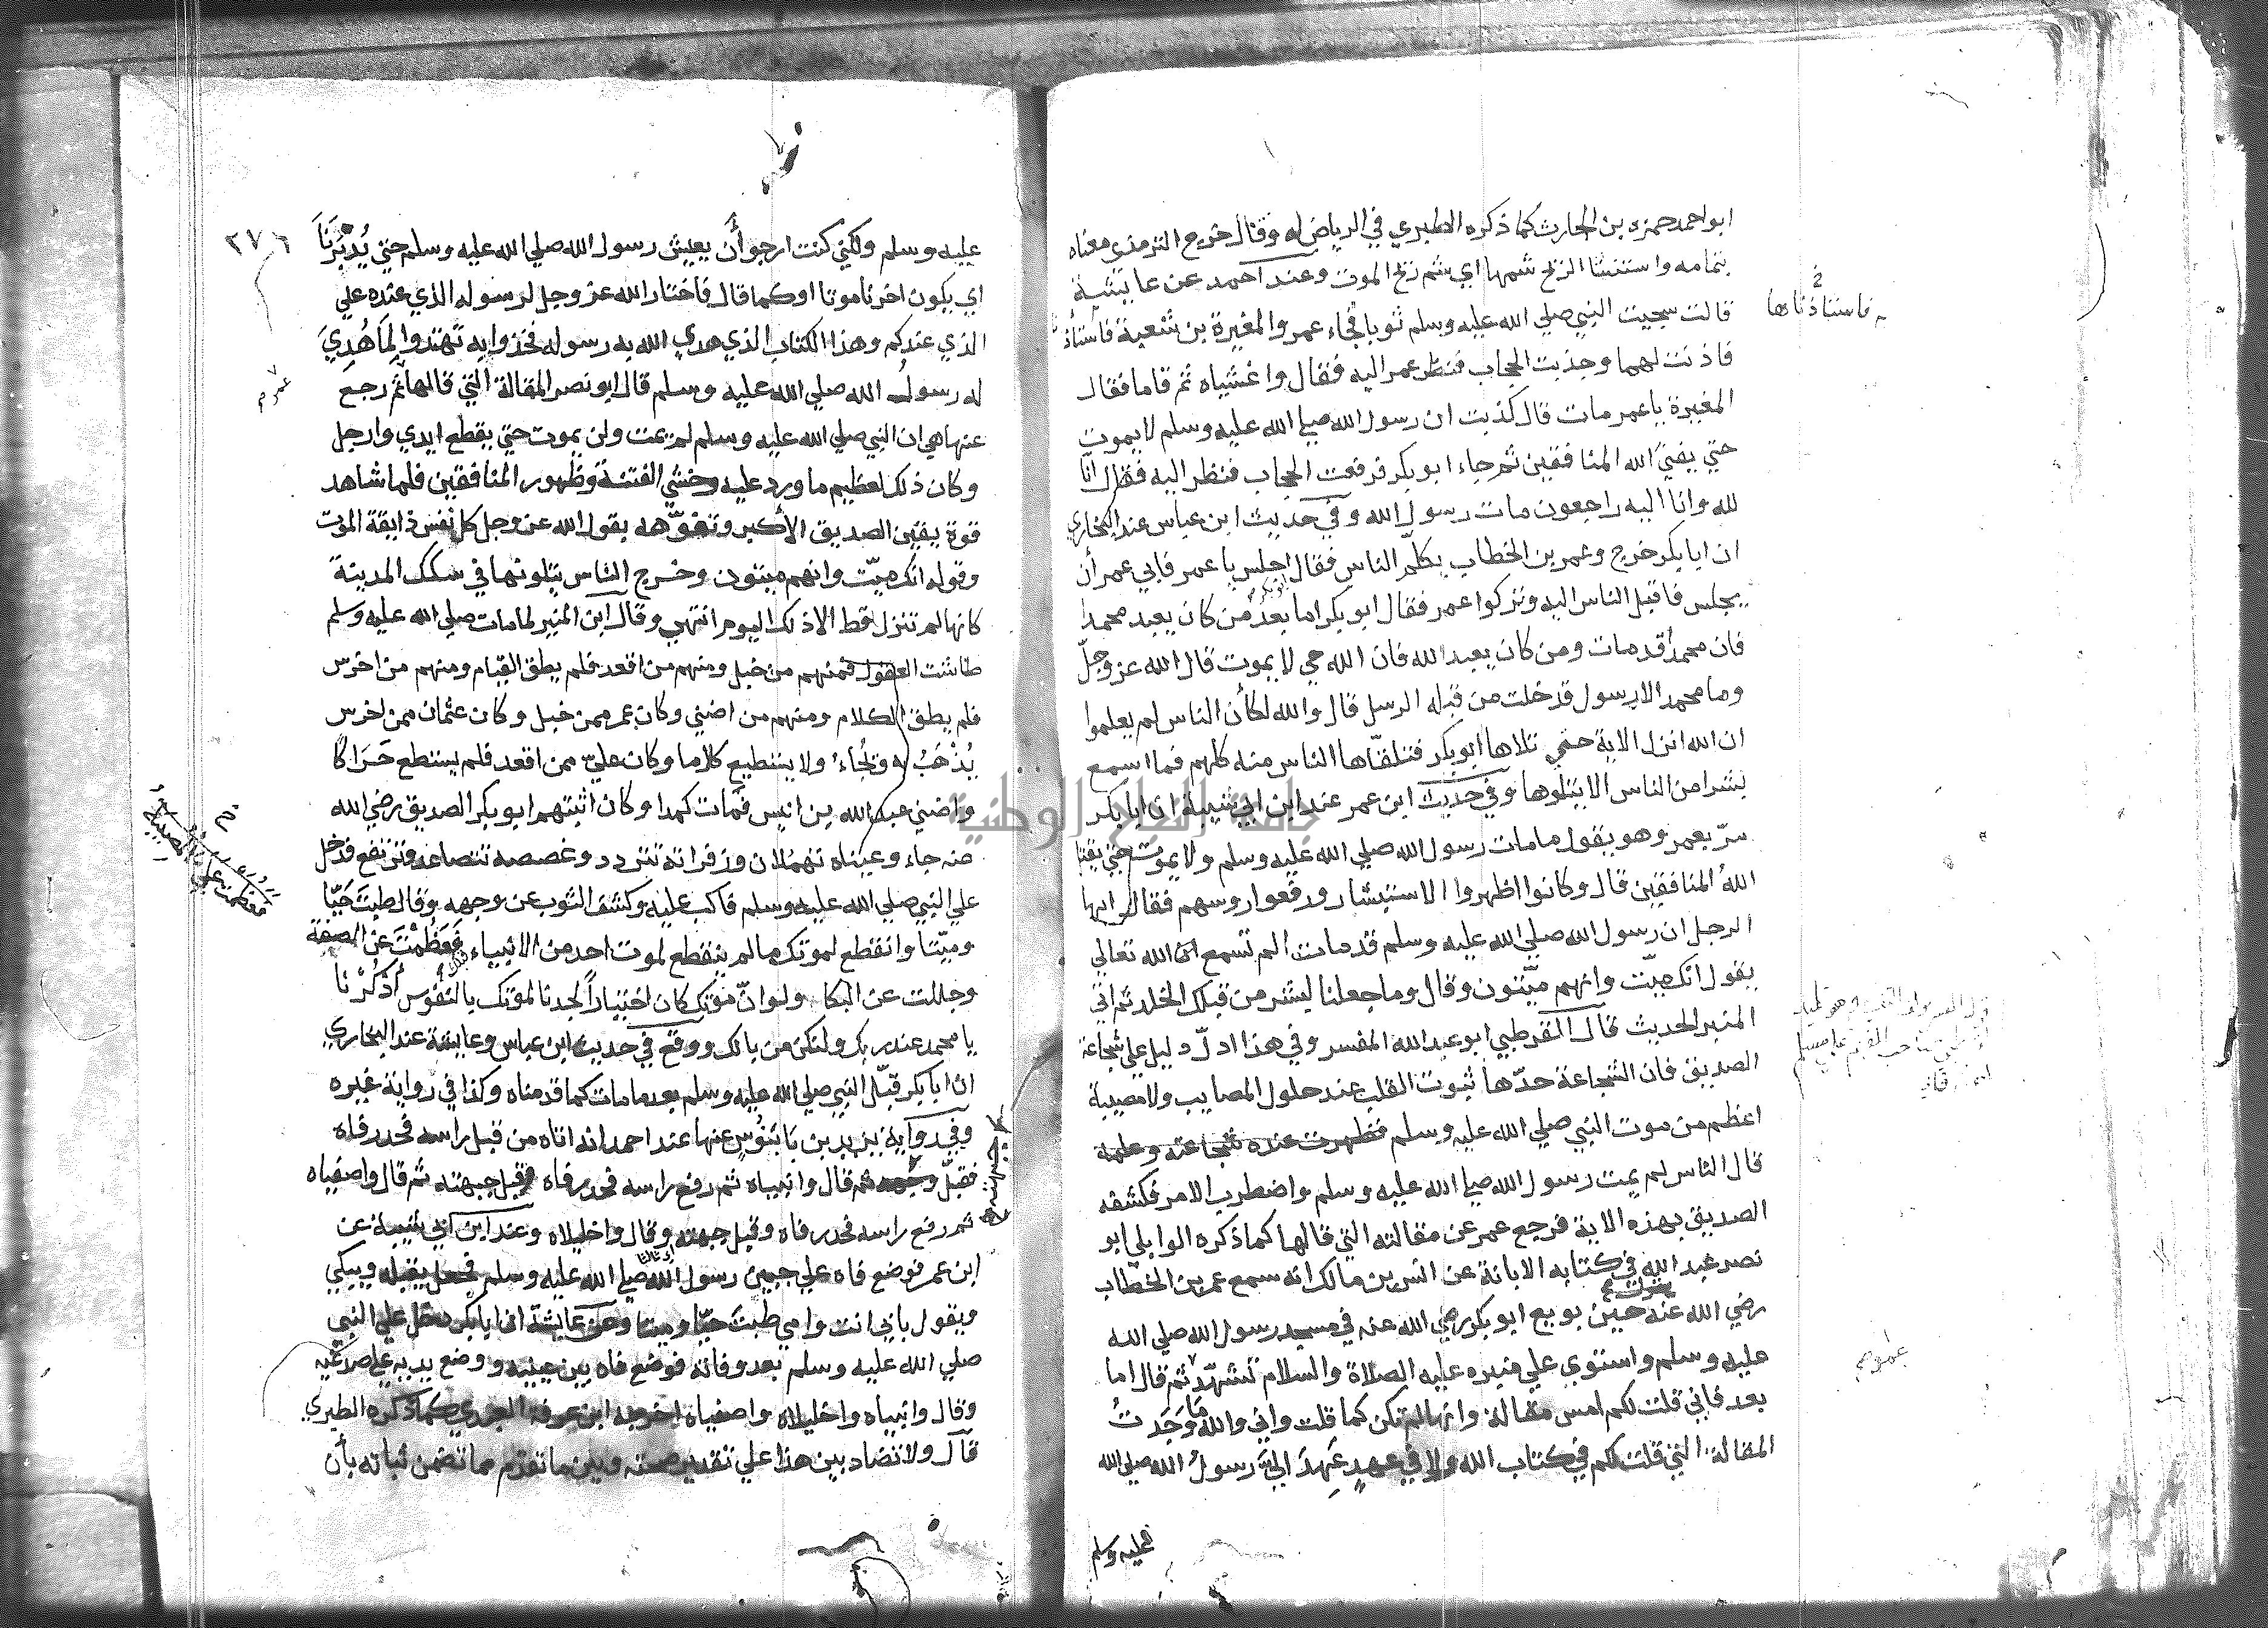 ابو احمد حمزه بن الحارث كما ذكره الطبري في الرياض له وقال خرج الترمذي معناه
بتمامه واستنشا الريح شمها اي شم ريح الموت وعند احمد عن عايشة
قالت سجيت النبي صلي الله عليه وسلم ثوبا فجاء عمر والمغيرة بن شعبة فاستأذنا
فاستاذناها
فاذنت لهما وجذبت الحجاب فنظر عمر اليه فقال واغشياه ثم قاما فقال
المغيرة يا عمر مات قال كذبت ان رسول الله صلي الله عليه وسلم لا يموت
حتي يفني الله المنافقين ثم جاء ابو بكر فرفعت الحجاب فنظر اليه فقال انا
لله وانا اليه راجعون مات رسول الله وفي حديث ابن عباس عند البخاري
ان ابا بكر خرج وعمر بن الخطاب يكلم الناس فقال اجلس يا عمر فابي عمر أن
يجلس فاقبل الناس اليه وتركوا عمر فقال ابو بكر اما بعد من كان يعبد محمدا
فان محمدا قد مات ومن كان يعبد الله فان الله حي لا يموت قال الله عز وجل
وما محمد الا رسول قد خلت من قبله الرسل قال والله لكأن الناس لم يعلموا
ان الله انزل الاية حتي تلاها ابو بكر فتلقاها الناس منه كلهم فما اسمع
بشرا من الناس الا يتلوها وفي حديث ابن عمر عند ابن ابي شيبة ان ابا بكر
مرّ بعمر وهو يقول ما مات رسول الله صلي الله عليه وسلم ولا يموت حتي يقتل
اللهُ المنافقين قال وكانوا اظهروا الاستبشار ورفعوا روسهم فقال ايها
الرجل ان رسول الله صلي الله عليه وسلم قد مات الم تسمع الله تعالى
يقول انك ميّت وانهم ميّتون وقال وما جعلنا لبشر من قبلك الخلد ثم اتى
المنبر الحديث قال القرطبي ابو عبد الله المفسر وفي هذا ادلّ دليل علي شجاعة
الصديق فان الشجاعة حدّها ثبوت القلب عند حلول المصايب ولا مصيبة
اعظم من موت النبي صلي الله عليه وسلم فظهرت عنده شجاعته وعلمه
قال الناس لم يمت رسول الله صلي الله عليه وسلم واضطرب الامر فكشفه
الصديق بهذه الاية فرجع عمر عن مقالته التي قالها كما ذكره الوايلي ابو
نصر عبد الله في كتابه الابانة عن انس بن مالك انه سمع عمر بن الخطاب
رضي الله عنه حين بويع ابو بكر رضي الله عنه في مسجد رسول الله صلي الله
عليه وسلم واستوي علي منبره عليه الصلاة والسلام تشهّد ثم قال اما
بعد فاني قلت لكم امس مقالة وانها لم تكن كما قلت واني والله ما وَجَدتُ
المقالة التي قلت لكم في كتاب الله ولا في عهدٍ عَهِدَ اليّ رسولُ الله صلي الله
عليه وسلم
٢٧٦
عليه وسلم ولكني كنت ارجو أن يعيش رسول الله صلي الله عليه وسلم حتي يُدْبُرَنَا
اي يكون اخرنا موتا او كما قال فاختار الله عز وجل لرسوله الذي عنده علي
الذي عندكم وهذا الكتاب الذي هدي الله به رسوله فخذوا به تهتدوا لِمَا هُدِيَ
له رسولُ الله صلي الله عليه وسلم قال ابو نصر المقالة التي قالها ثم رجع
عمر
عنها هي ان النبي صلي الله عليه وسلم لم يمت ولن يموت حتي يقطع ايدي وارجل
وكان ذلك لعظيم ما ورد عليه وخشي الفتنة وظهور المنافقين فلما شاهد
قوة يقين الصديق الأكبر وتفوّهه بقول الله عز وجل كل نفس ذايقة الموت
وقوله انك ميّت وانهم ميتون وخرج الناس يتلونها في سكك المدينة
كانها لم تنزل قط الا ذلك اليوم انتهي وقال ابن المنير لما مات صلي الله عليه وسلم
طاشت العقول فمنهم من خبل ومنهم من اقعد فلم يطق القيام ومنهم من اخرس
فلم يطق الكلام ومنهم من اضني وكان عمر ممن خبل وكان عثمان ممن اخرس
يُذْهَبُ به ويُجَاءُ ولا يستطيع كلاما وكان عليّ ممن اقعد فلم يستطع حَرَاكا
واضني عبد الله بن انيس فمات كمدا وكان اثبتهم ابو بكر الصديق رضي الله
عنه جاء وعيناه تهملان وزفراته تتردد وغصصه تتصاعد وترتفع فدخل
علي النبي صلي الله عليه وسلم فاكب عليه وكشف الثوب عن وجهه وقال طبتَ حَيّا
وميّتا وانقطع لموتك ما لم ينقطع لموت احد من الانبياء فَعَظُمْتَ عن الصفة
وجللت عن البكا ولو انّ موتك كان اختياراً لجدنا لموتك بالنفوس أُذْكُرْنَا
يا محمد عند ربك ولنكن من بالك ووقع في حديث ابن عباس وعايشة عند البخاري
ان ابا بكر قبّل النبي صلي الله عليه وسلم بعد ما مات كما قدمناه وكذا في رواية غيره
وفي رواية يزيد بن بابنوس عنها عند احمد انه اتاه من قبل راسه فحدر فاه
فقبّل جبهته ثم قال وانبياه ثم رفع راسه فحدر فاه وقبل جبهته ثم قال واصفياه
ثم رفع راسه فحدر فاه وقبل جبهته وقال واخليلاه وعند ابن ابي شيبة عن
ابن عمر فوضع فاه علي جبين رسول الله صلي الله عليه وسلم فجعل يقبله ويبكي
ويقول بابي انت وامي طبت حيّا وميتا وعن عايشة ان ابا بكر دخل علي النبي
صلي الله عليه وسلم بعد وفاته فوضع فاه بين عينيه ووضع يديه علي صدغيه
وقال وانبياه واخليلاه واصفياه اخرجه ابن عرفة العبدي كما ذكره الطبري
قال ولا تضاد بين هذا علي تقدير صحته وبين ما تقدّم مما تضمن ثباته بأن
جامعة النجاح الوطنية